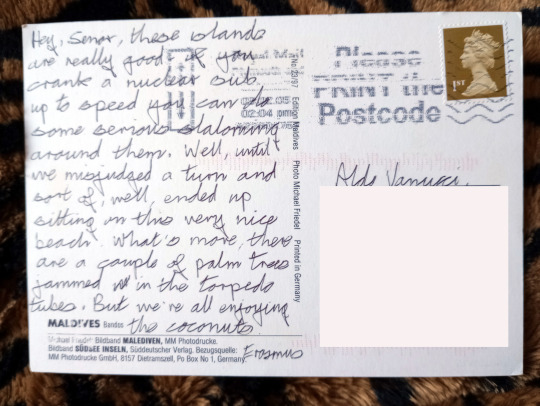 Hey, Senor, these islands
are really good if you
crank a nuclear sub
up to speed you can do
some serious slaloming
around them. Well, until
we misjudged a turn and
sort of, well, ended up
sitting on this very nice
beach. What's more, there
are a couple of palm trees
jammed in the torpedo
tubes. But we're all enjoying
the coconuts
Erasmus
MALDIVES Bandos
Michael Friedel Bildband MALEDIVEN, MM Photodrucke.
Bildband SÜDSEE INSELN, Süddeutscher Verlag. Bezugsquelle:
MM Photodrucke GmbH, 8157 Dietramszell, Po Box No 1, Germany
Edition Maldives Photo Michael Friedel Printed in Germany
02:04 pm
Please
PRINT the
Postcode
1ST
Aldo Vanucci,